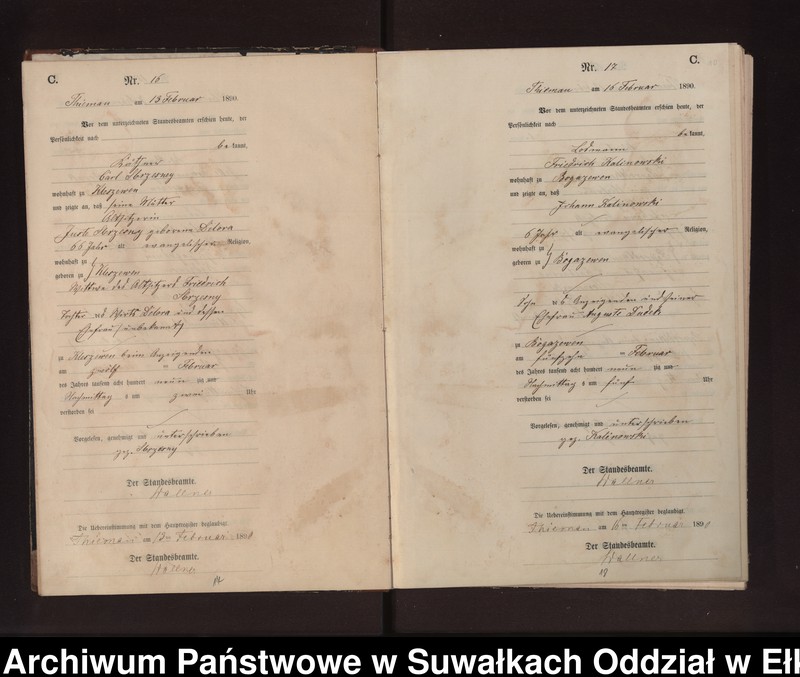 C.
Nr. 16
Thieman am 13 Februar 1890.
Vor dem unterzeichneten Standesbeamten erschien heute, der
Persönlichkeit nach
be kannt,
Käthner
Carl
wohnhaft zu Kleszewen
und zeigte an, daß seine Mutter
Altsitzerin
geborene Debora
66 Jahr alt evangelischer Religion,
wohnhaft zu
geboren zu Kleszewen
Wittwe des Altsitzers Friedrich
Tochter des Wirth Debora und dessen
Ehefrau (unbekannt)
zu Kleszewen beim Anzeigenden
am zwölf ten Februar
des Jahres tausend acht hundert neun zig
Nachmittag s um zwei Uhr
verstorben sei
Vorgelesen, genehmigt und unterschrieben
gez.
Der Standesbeamte.
Wallner
Die Uebereinstimmung mit dem Hauptregister beglaubigt
Thieman am 13ten Februar 1890
Der Standesbeamte.
Wallner
C.
Nr. 17
Thieman am 16 Februar 1890.
Vor dem unterzeichneten Standesbeamten erschien heute, der
Persönlichkeit nach
be kannt,
Losmann
Friedrich Kalinowski
wohnhaft zu Bogazewen
und zeigte an, daß
Johann Kalinowski
6 Jahr alt evangelischer Religion,
wohnhaft zu
geboren zu Bogazewen
Sohn des Anzeigenden und seiner
Ehefrau Auguste
zu Bogazewen
am fünfzehn ten Februar
des Jahres tausend acht hundert neun zig
Nachmittag s um fünf Uhr
verstorben sei
Vorgelesen, genehmigt und unterschrieben
gez. Kalinowski
Der Standesbeamte.
Wallner
Die Uebereinstimmung mit dem Hauptregister beglaubigt
Thieman am Februar 1890
Der Standesbeamte.
Wallner
Archiwum Państwowe w Suwałkach Oddział w Ełk